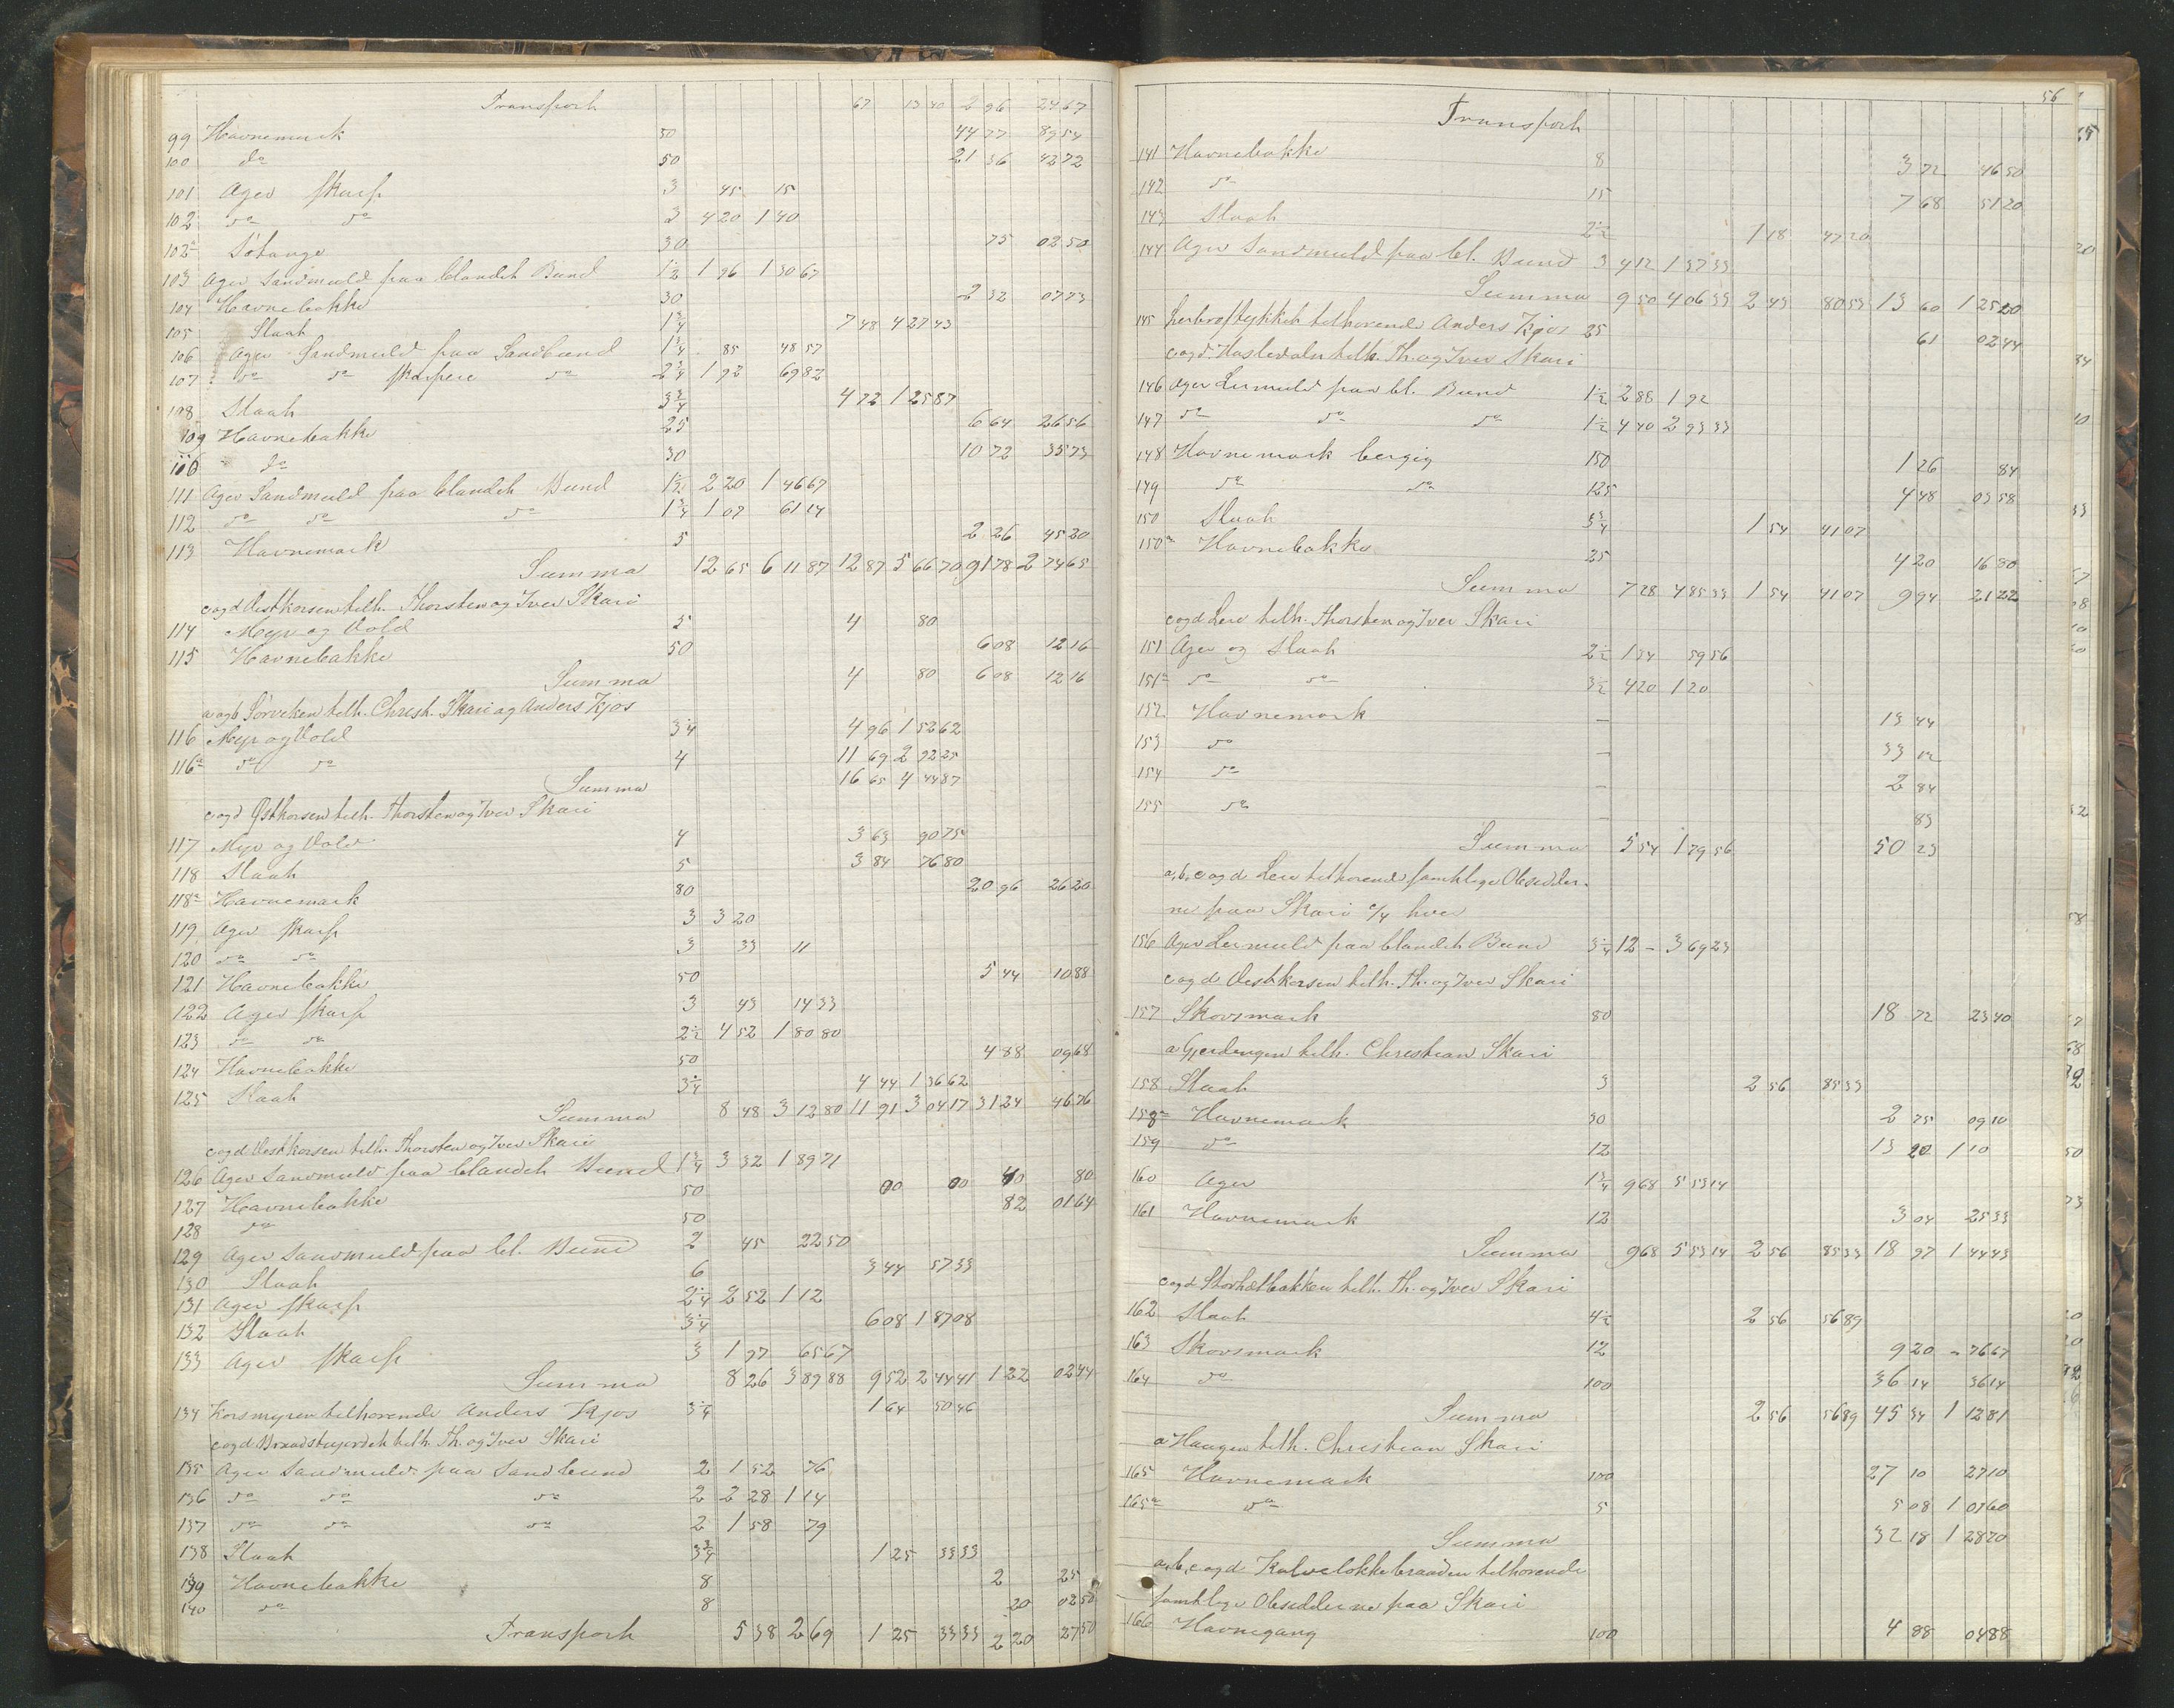 Transport 67 13 40 2 96 24 67
99 Havnemark 50 44 77 89 54
100 do 50 21 36 42 72
101 Ager skarp 3 45 15
102 do do 3 4 20 1 40
102a 30 75 02 50
103 Ager Sandmuld paa blandet Bund 1½ 1 96 1 30 67
104 Havnebakke 30 2 32 07 73
105 Slaat 1¾ 7 48 4 27 43
106 Ager Sandmuld paa Sandbund 1¾ 85 48 57
107 do do skarpere do 2¾ 1 92 69 82
108 Slaat 3¾ 4 72 1 25 87
109 Havnebakke 25 6 64 26 56
110 do 30 10 72 35 73
111 Ager Sandmuld paa blandet Bund 1½ 2 20 1 46 67
112 do do do 1¾ 1 07 61 14
113 Havnemark 5 2 26 45 20
Summa 12 65 6 11 87 12 87 5 66 70 91 78 2 74 65
c og d Vestkorsen tilh. Thorsten og Iver Skari
114 Myr og Vold 5 4 80
115 Havnebakke 50 6 08 12 16
Summa 4 80 6 08 12 16
a og b Sørveken tilh. Christ. Skari og Anders Kjos
116 Myr og Vold 3¼ 4 96 1 52 62
116a do do 4 11 69 2 92 25
Summa 16 65 4 44 87
c og d Østkorsen tilh. Thorsten og Iver Skari
117 Myr og Vold 4 3 63 90 75
118 Slaat 5 3 84 76 80
118a Havnemark 80 20 96 26 20
119 Ager skarp 3 3 20
120 do do 3 33 11
121 Havnebakke 50 5 44 10 88
122 Ager skarp 3 43 14 33
123 do do 2½ 4 52 1 80 80
124 Havnebakke 50 4 88 09 68
125 Slaat 3¼ 4 44 1 36 62
Summa 8 48 3 12 80 11 91 3 04 17 31 24 46 76
c og d Vestkorsen tilh. Thorsten og Iver Skari
126 Ager Sandmuld paa blandet Bund 1¾ 3 32 1 89 71
127 Havnebakke 50 00 00 40 80
128 do 50 82 01 64
129 Ager Sandmuld paa bl. Bund 2 45 22 50
130 Slaat 6 3 44 57 33
131 Ager skarp 2¼ 2 52 1 12
132 Slaat 3¼ 6 08 1 87 08
133 Ager skarp 3 1 97 65 67
Summa 8 26 3 89 88 9 52 2 44 41 1 22 02 44
134 Korsmyren tilhorende Anders Kjos 3¼ 1 64 50 46
c og d tilh. Th. og Iver Skari
135 Ager Sandmuld paa Sandbund 2 1 52 76
136 do do do 2 2 28 1 14
137 do do do 2 1 58 79
138 Slaat 3¾ 1 25 33 33
139 Havnebakke 8 2 25
140 do 8 20 02 50
Transport 5 38 2 69 1 25 33 33 2 20 27 50
56
Transport
141 Havnebakke 8 3 72 46 50
142 do 15 7 68 51 20
143 Slaat 2½ 1 18 47 20
144 Ager Sandmuld paa bl. Bund 3 4 12 1 37 33
Summa 9 50 4 06 33 2 43 80 53 13 60 1 25 20
145 tilhorende Anders Kjos 25 61 02 44
c og d tilh. Th. og Iver Skari
146 Ager Lermuld paa bl. Bund 1½ 2 88 1 92
147 do do do 1½ 4 40 2 93 33
148 Havnemark bergig 150 1 26 84
149 do do 125 4 48 03 58
150 Slaat 3¾ 1 54 41 07
150a Havnebakke 25 4 20 16 80
Summa 7 28 4 85 33 1 54 41 07 9 94 21 22
c og d Leie tilh. Thorsten og Iver Skari
151 Ager og Slaat 2½ 1 34 59 56
151a do do 3½ 4 20 1 20
152 Havnemark — 13 44
153 do — 33 02
154 do — 2 84
155 do — 83
Summa 5 54 1 79 56 50 23
a, b, c og d Leie tilhorende samtlige Obsidder-
ne paa Skari ¼ hver
156 Ager Lermuld paa blandet Bund 3¼ 12 – 3 69 23
c og d Vestkorsen tilh. Th. og Iver Skari
157 Skovsmark 80 18 72 23 40
a Gjerdingen tilh. Christian Skari
158 Slaat 3 2 56 85 33
158a Havnemark 30 2 75 09 10
159 do 12 13 20 1 10
160 Ager 1¾ 9 68 5 53 14
161 Havnemark 12 3 04 25 33
Summa 9 68 5 53 14 2 56 85 33 18 97 1 44 43
c og d tilh. Th. og Iver Skari
162 Slaat 4½ 2 56 56 89
163 Skovsmark 12 9 20 76 67
164 do 100 36 14 36 14
Summa 2 56 56 89 45 34 1 12 81
a Haugen tilh. Christian Skari
165 Havnemark 100 27 10 27 10
165a do 5 5 08 1 01 60
Summa 32 18 1 28 70
a, b, c og d Kalvelokkebraaden tilhorende
samtlige Obsidderne paa Skari
166 Havnegang 100 4 88 04 88